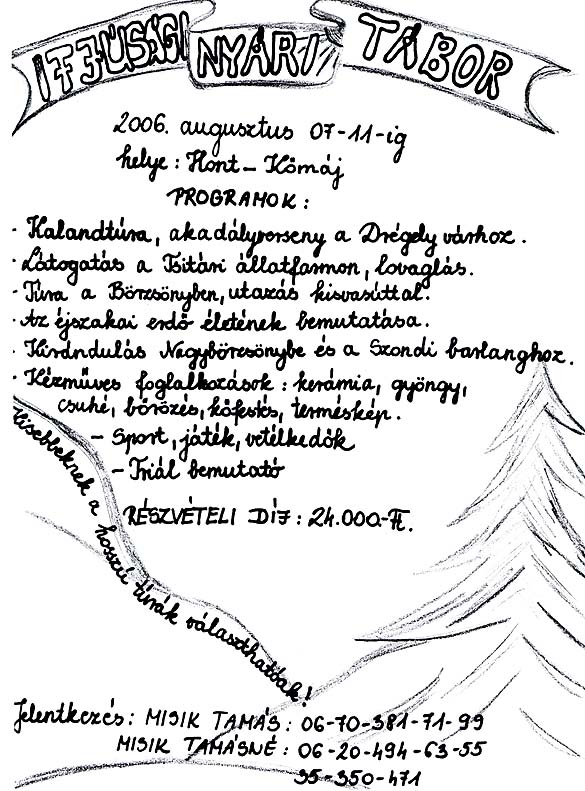 IFJÚSÁGI NYÁRI TÁBOR
2006. augusztus 07-11-ig
helye: Hont - Kömáj
PROGRAMOK:
· Kalandtúra, akadályverseny a Drégely várhoz.
· Látogatás a Tsitári állatfarmon, lovaglás.
· Túra a Börzsönyben, utazás kisvasúttal.
· Az éjszakai erdő életének bemutatása.
· Kirándulás Nagybörzsönybe és a Szondi barlanghoz.
· Kézműves foglalkozások: kerámia, gyöngy,
csuhé, bőrözés, kőfestés, terméskép.
- Sport, játék, vetélkedők
- Triál bemutató
RÉSZVÉTELI DÍJ: 24.000-Ft.
Kisebbeknek a hosszú túrák választhatóak!
Jelentkezés: MISIK TAMÁS: 06-70-381-71-99
MISIK TAMÁSNÉ: 06-20-494-63-55
35-350-471